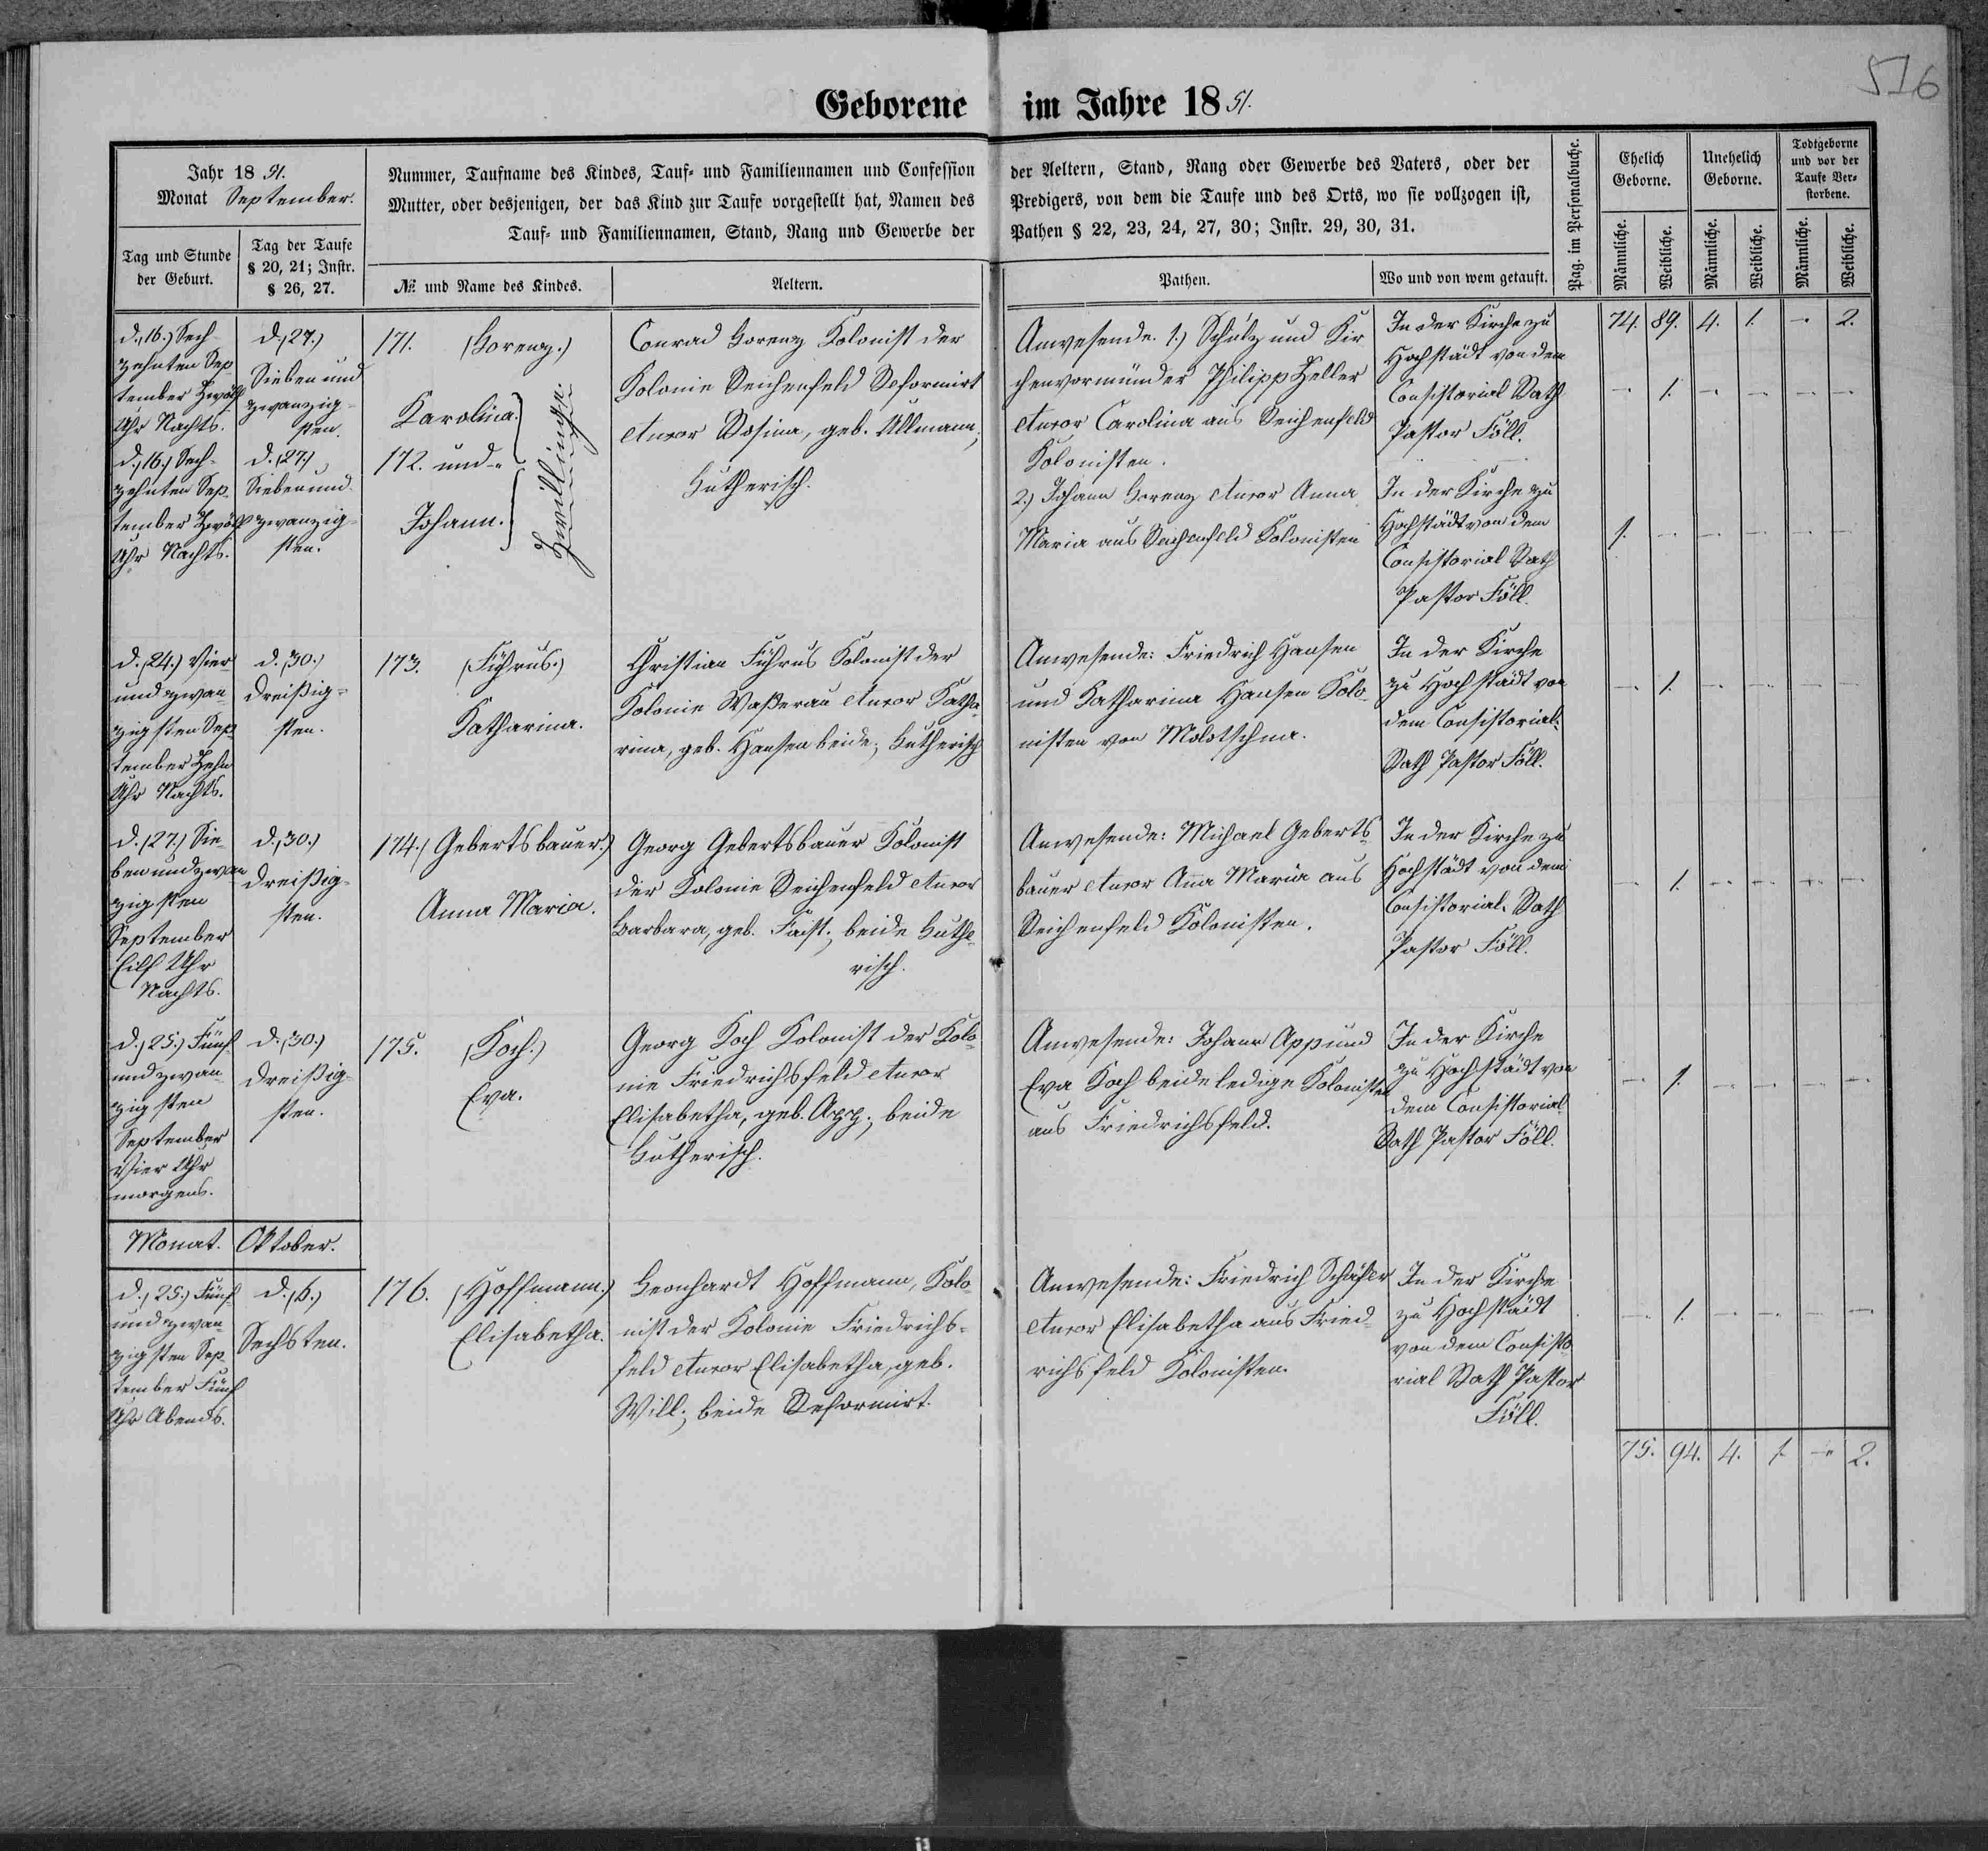 516
Geborene im Jahre 1851.
Jahr 1851.
Monat September.
Tag und Stunde der Geburt.
Tag der Taufe § 20, 21; Instr. § 26, 27.
Nummer, Taufname des Kindes, Tauf- und Familiennamen und Confession der Aeltern, Stand, Rang oder Gewerbe des Vaters, oder der
Mutter, oder desjenigen, der das Kind zur Taufe vorgestellt hat, Namen des Predigers, von dem die Taufe und des Orts, wo sie vollzogen ist,
Tauf- und Familiennamen, Stand, Rang und Gewerbe der Pathen § 22, 23, 24, 27, 30; Instr. 29, 30, 31.
№ und Name des Kindes.
Aeltern.
Pathen.
Wo und von wem getauft.
Pag. im Personalbuche.
Ehelich Geborne.
Unehelich Geborne.
Todtgeborne und vor der Taufe Verstorbene.
Männliche. Weibliche. Männliche. Weibliche. Männliche. Weibliche.
74. 89. 4. 1. - 2.
d. (16.) Sech-
zehnten Sep-
tember Zwölf
Uhr Nachts.
d. (27.)
Sieben und
zwanzig-
sten.
171. (Lorenz.)
Karolina.
d. (16.) Sech-
zehnten Sep-
tember Zwölf
Uhr Nachts.
d. (27.)
Sieben und
zwanzig-
sten.
172. und
Johann.
Zwillinge
Conrad Lorenz Kolonist der
Kolonie Reichenfeld Reformirt
Uxor Rosina, geb. Ullmann;
Lutherisch.
Anwesende. 1.) Schulz und Kir
chenvormünder Philipp Heller
Uxor Carolina aus Reichenfeld
Kolonisten.
2.) Johann Lorenz Uxor Anna
Maria aus Reichenfeld Kolonisten
In der Kirche zu
Hochstädt von dem
Consistorial Rath
Pastor Föll.
- 1. - - - -
In der Kirche zu
Hochstädt von dem
Consistorial Rath
Pastor Föll.
1. - - - - -
d. (24.) Vier
und zwan-
zigsten Sep-
tember Zehn
Uhr Nachts.
d. (30.)
Dreißig-
sten.
173. (Führus.)
Katharina.
Christian Führus Kolonist der
Kolonie Waßerau Uxor Katha-
rina, geb. Hansen beide; Lutherisch
Anwesende: Friedrich Hansen
und Katharina Hansen Kolo-
nisten von Molotschna.
In der Kirche
zu Hochstädt von
dem Consistorial-
Rath Pastor Föll.
- 1. - - - -
d. (27.) Sie-
ben und zwan
zigsten
September
Eilf Uhr
Nachts.
d. (30.)
Dreißig-
sten.
174. (Gebertsbauer.)
Anna Maria.
Georg Gebertsbauer Kolonist
der Kolonie Reichenfeld Uxor
Barbara, geb. Faist; beide Luthe-
risch.
Anwesende: Michael Geberts-
bauer Uxor Anna Maria aus
Reichenfeld Kolonisten.
In der Kirche zu
Hochstädt von dem
Consistorial-Rath
Pastor Föll.
- 1. - - - -
d. (25.) Fünf
und zwan-
zigsten
September
Vier Uhr
morgens.
d. (30.)
Dreißig-
sten.
175. (Koch.)
Eva.
Georg Koch Kolonist der Kolo-
nie Friedrichsfeld Uxor
Elisabetha, geb. App; beide
Lutherisch.
Anwesende: Johann App und
Eva Koch beide ledige Kolonisten
aus Friedrichsfeld.
In der Kirche
zu Hochstädt von
dem Consistorial
Rath Pastor Föll.
- 1. - - - -
Monat. Oktober.
d. (25.) Fünf
und zwan-
zigsten Sep-
tember Fünf
Uhr Abends.
d. (6.)
Sechsten.
176. (Hoffmann.)
Elisabetha.
Leonhardt Hoffmann, Kolo-
nist der Kolonie Friedrichs-
feld Uxor Elisabetha, geb.
Will; beide Reformirt.
Anwesende: Friedrich Schäfer
Uxor Elisabetha aus Fried-
richsfeld Kolonisten.
In der Kirche
zu Hochstädt
von dem Consisto
rial Rath Pastor
Föll.
- 1. - - - -
75. 94. 4. 1. - 2.